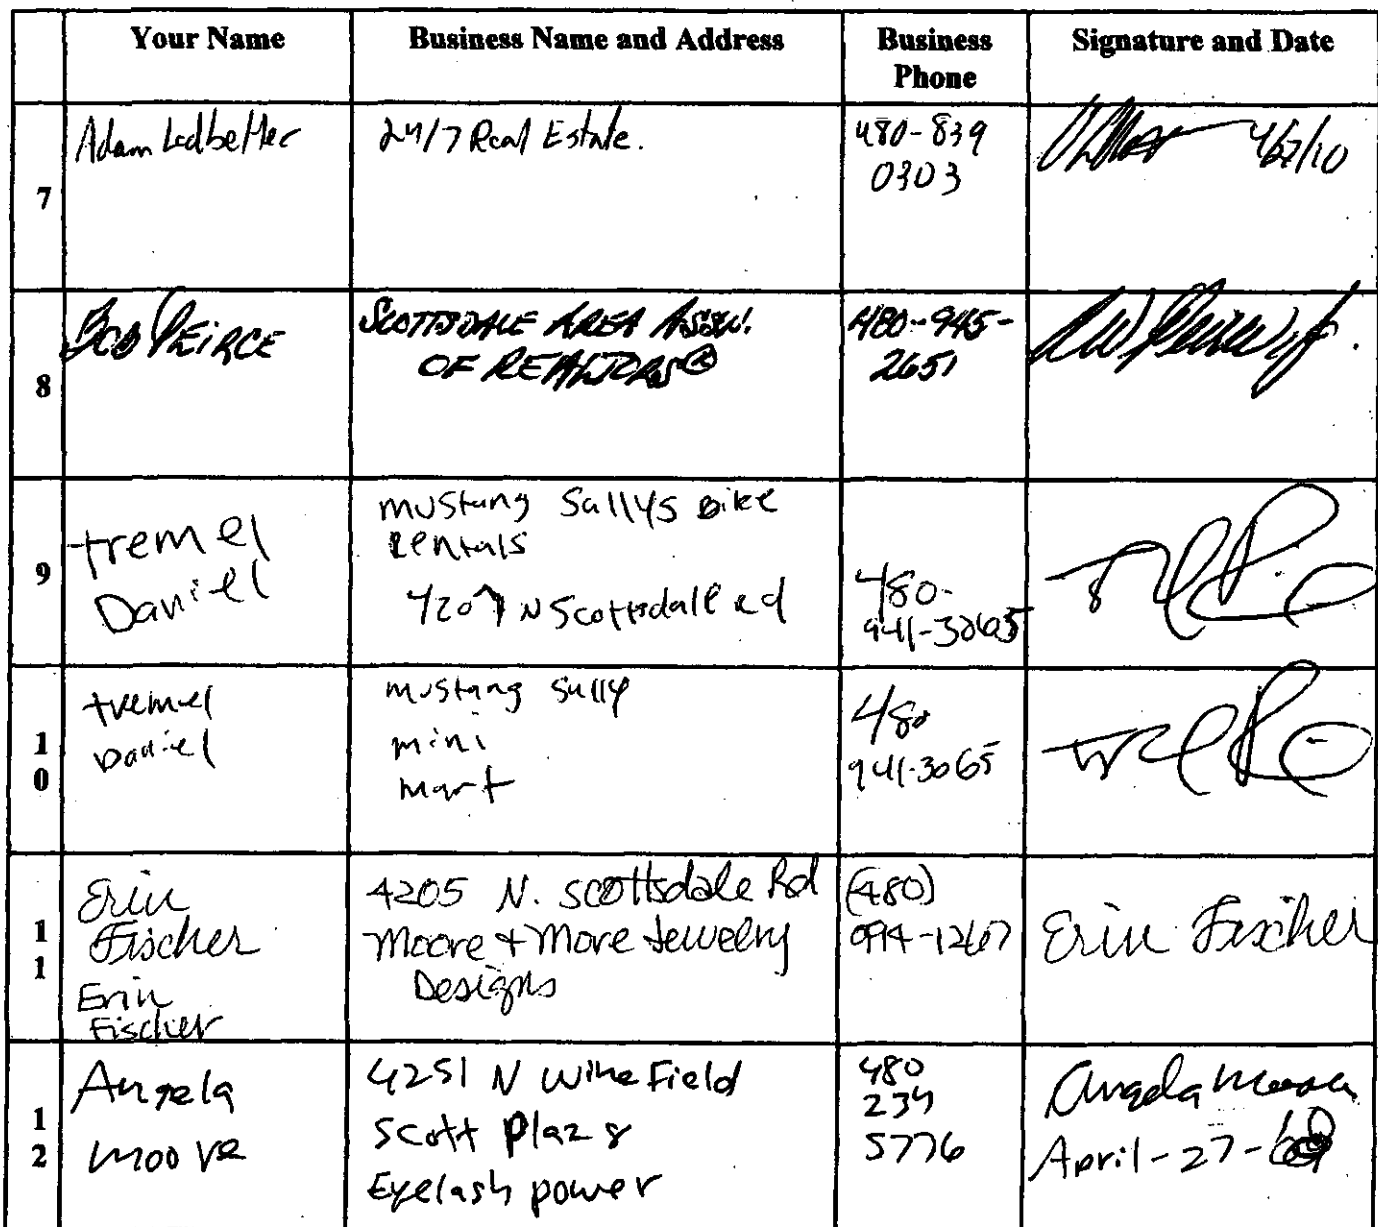 Your Name
Business Name and Address
Business
Phone
Signature and Date
7
Adam Ledbetter
24/7 Real Estate.
480-839
0303
4/27/10
8
BOB PEIRCE
SCOTTSDALE AREA ASSN.
OF REALTORS®
480-945-
2651
9
tremel
Daniel
mustang Sallys Bike
Rentals
4207 N Scottsdale Rd
480-
941-3065
1
0
tremel
Daniel
mustang Sally
mini
mart
480
941-3065
1
1
Erin
Fischer
Erin
Fischer
4205 N. Scottsdale Rd
Moore + More Jewelry
Designs
(480)
994-1267
Erin Fischer
1
2
Angela
Moore
4251 N Wine Field
Scott Plaz
Eyelash power
480
234
5776
Angela Moore
April-27-